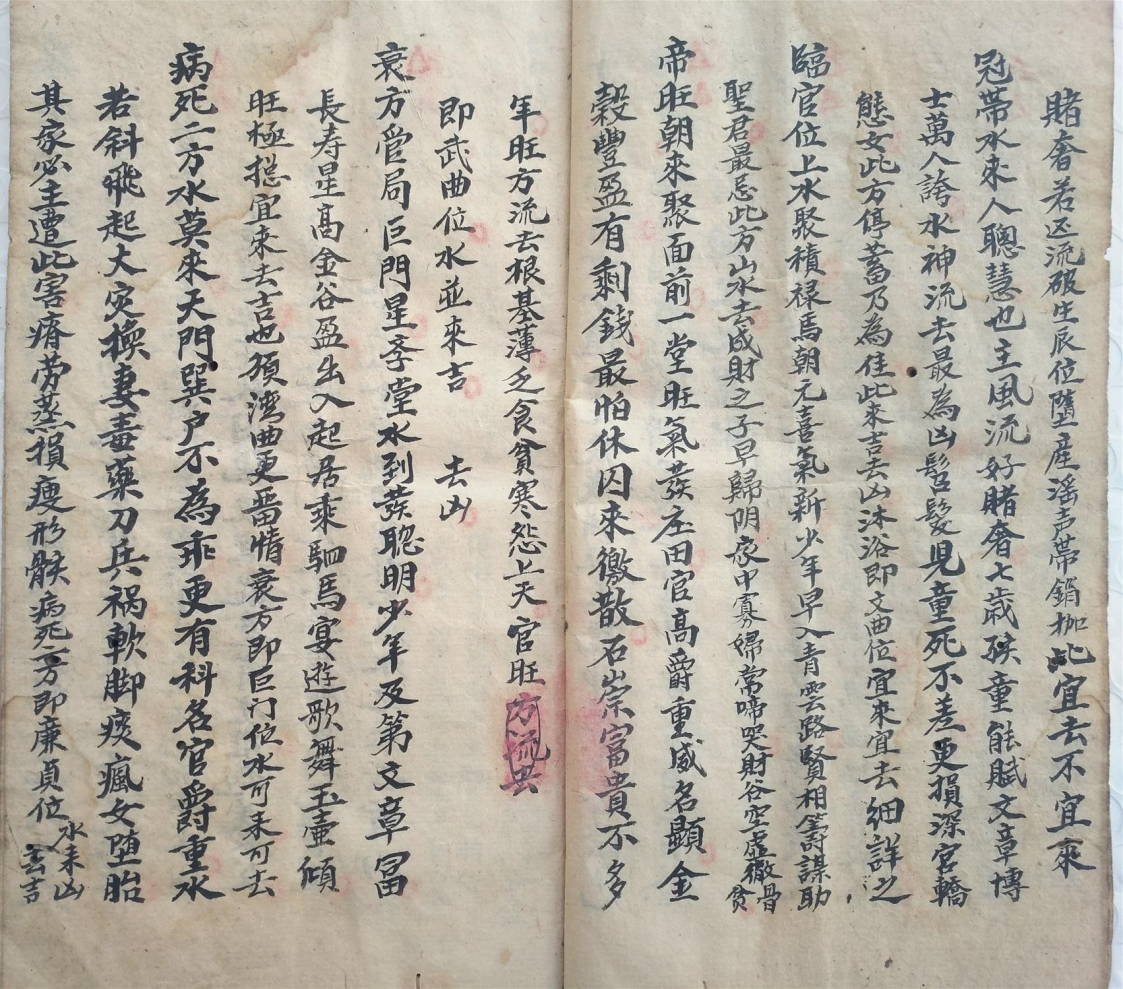 賭奢若返流破生辰位墮産滛声帯鎖枷此宜去不宜來
冠帶水來人聰慧也主風流好賭奢七歲孩童能賦文章博
士萬人誇水神流去最為凶髫髮児童死不差更損深宮轎
態女此方停蓄乃為佳此來吉去凶沐浴即文曲位宜來宜去細詳之
臨官位上水聚積禄馬朝元喜氣新少年早入青雲路賢相籌謀助
聖君最忌此方山水去成財之子早歸阴家中寡婦常啼哭財谷空虛徹骨貧
帝旺朝來聚面前一堂旺氣發庄田官高爵重威名顯金
榖豐盈有剩錢最怕休囚來激散石崇富貴不多
年旺方流去根基薄乏食貧寒怨上天官旺方流去
即武曲位水並來吉 去凶
衰方管局巨門星斈堂水到發聡明少年及第文章冨
長寿星高金谷盈出入起居乘駟馬宴遊歌舞玉壷傾
旺極揔宜來去吉也湏湾曲更畱情衰方即巨门位水可来可去
病死二方水莫來天門巽户不為乖更有科名官爵重水
若斜飛起大灾換妻毒藥刀兵禍軟脚痎瘋女墮胎
其家必主遭此害瘠劳蒸損瘦形骸病死二方即廉貞位水来凶去吉